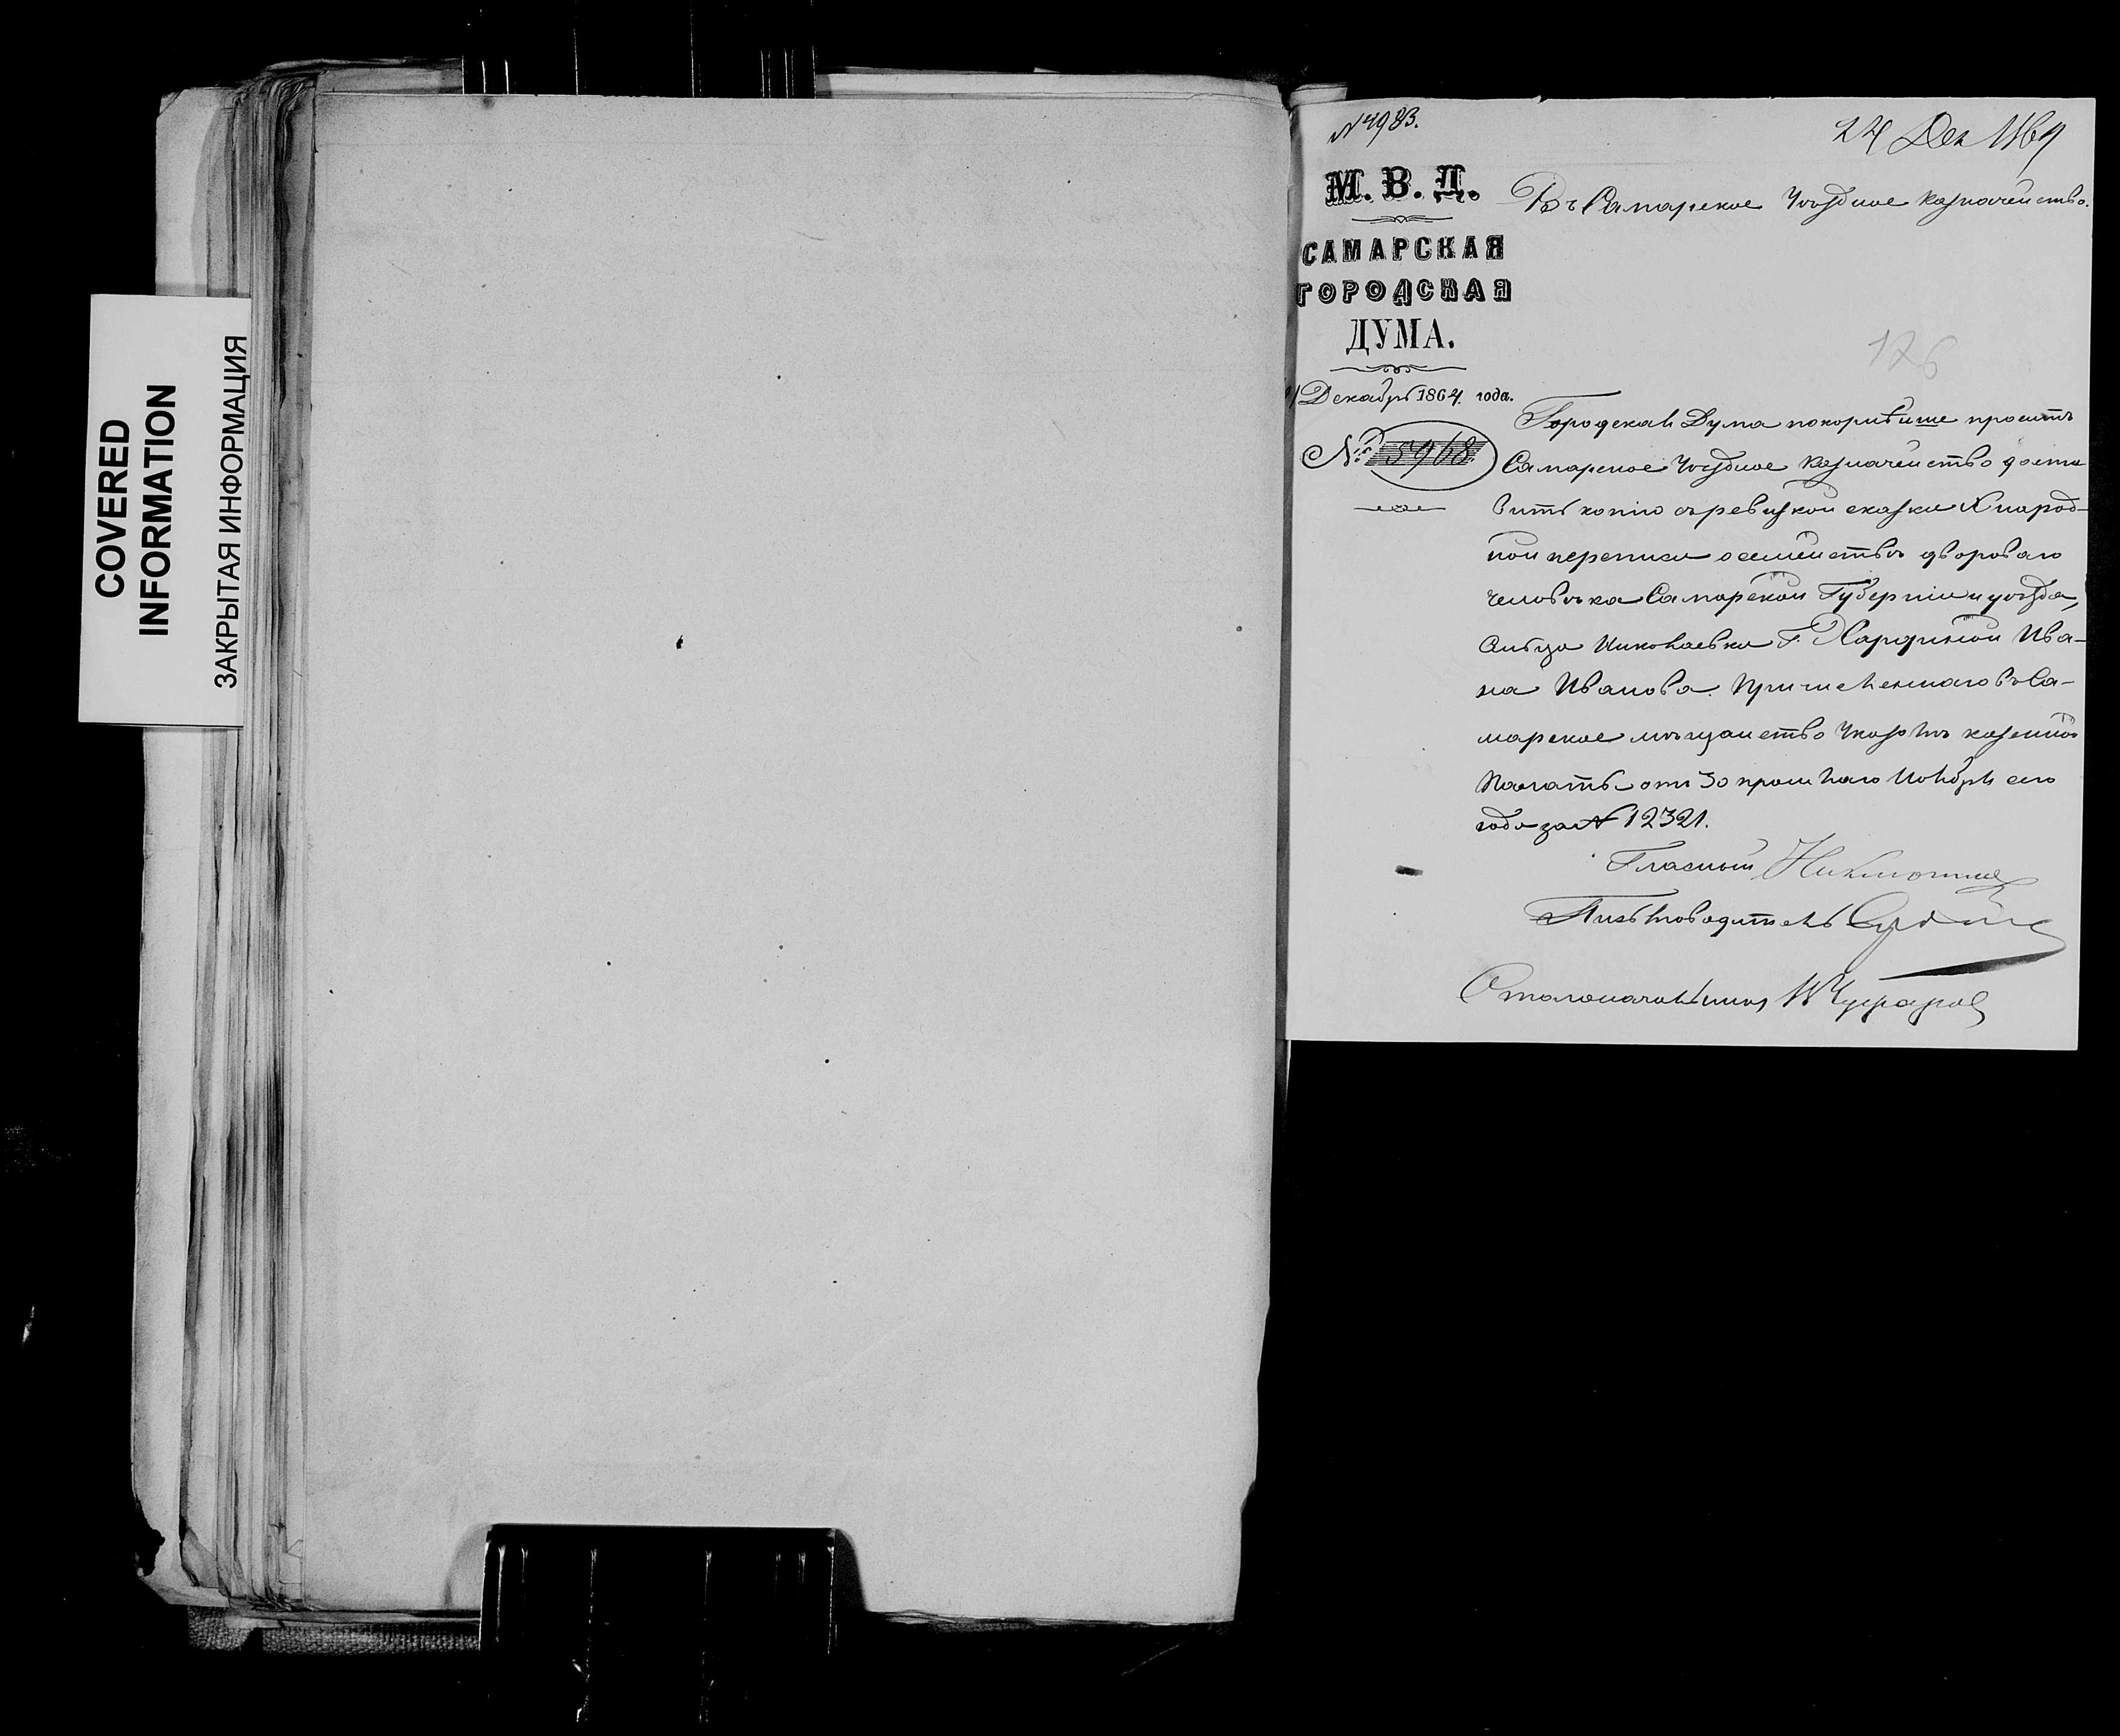 COVERED
INFORMATION
ЗАКРЫТАЯ ИНФОРМАЦИЯ
№ 4983.
24 Дек 1864
М. В. Д.
САМАРСКАЯ
ГОРОДСКАЯ
ДУМА.
Декабря 1864 года.
№ 5968
Въ Самарское Уѣздное Казначейство.
126
Городская Дума покорнѣйше проситъ
Самарское Уѣздное Казначейство доста
вить копію съ ревизской сказки X народ-
ной переписи о семействѣ двороваго
человѣка Самарской Губерніи и уѣзда,
сельца Николаевки Г. Хардиной Ива-
на Иванова. Причисленнаго въ Са-
марское мѣщанство Указомъ казенной
Палаты отъ 30 прошлаго Ноября сего
года за № 12321.
Гласный
Письмоводитель
Столоначальникъ